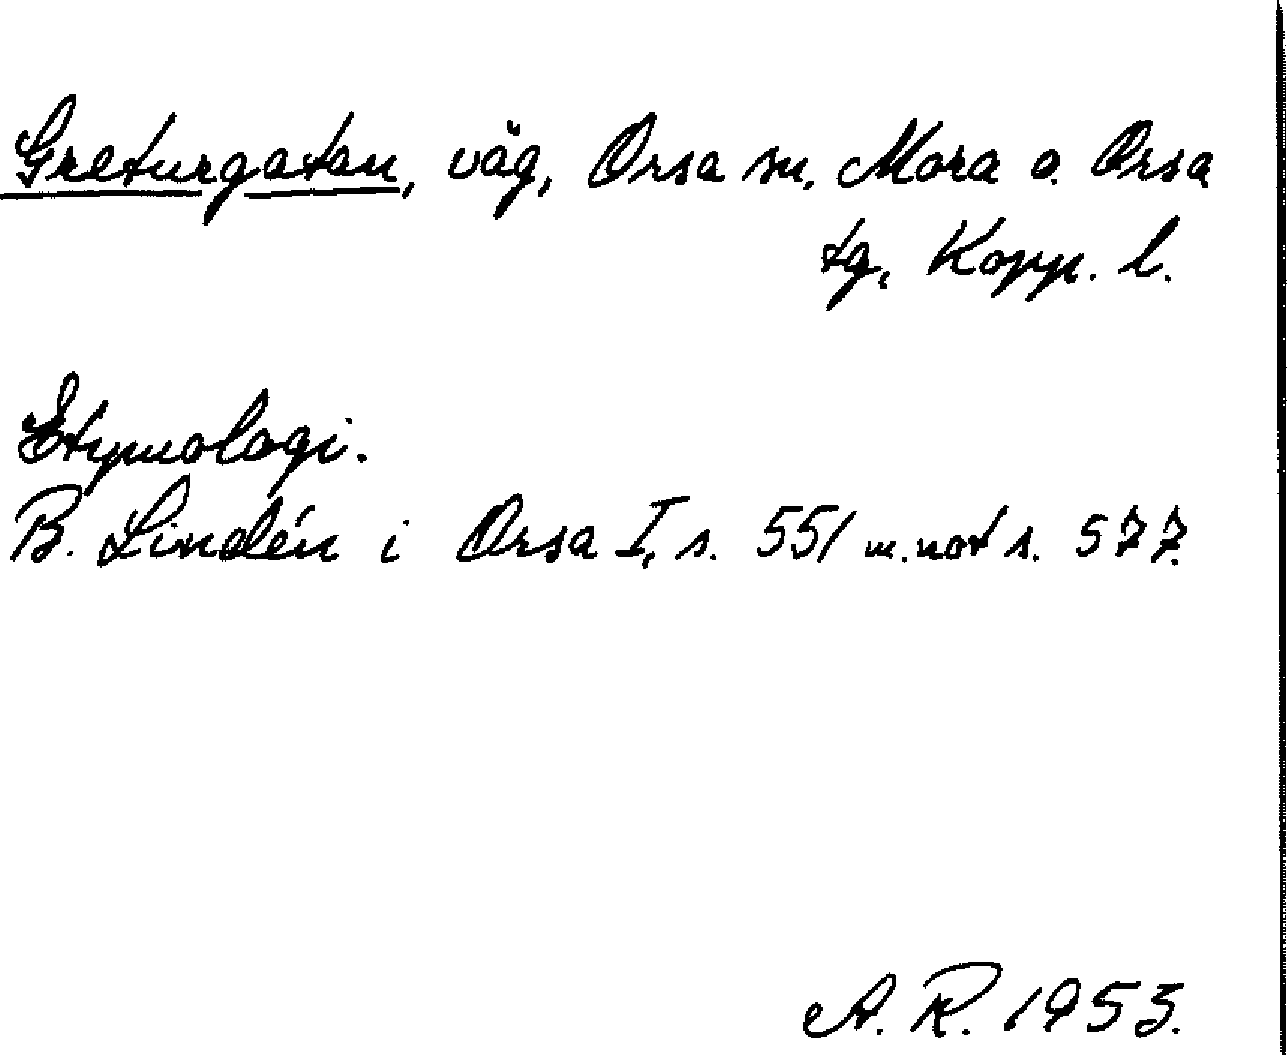 Greturgatan, väg, Orsa sn. Mora o. Orsa
tg, Kopp. l.
Etymologi.
B. Lindén i Orsa I, s. 551 m. not s. 577.
A. R. 1953.